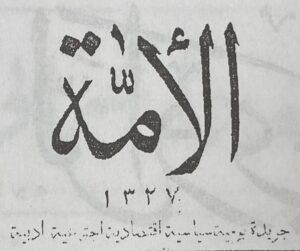 الأمة
١٣٢٧
جريدة يومية سياسية اقتصادية اجتماعية ادبية